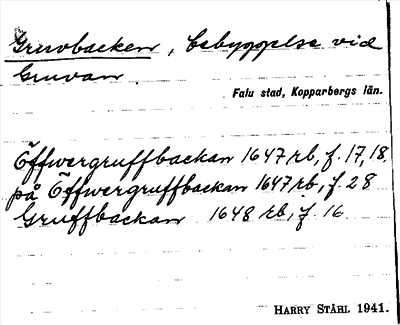 Gruvbacken, bebyggelse vid
Gruvan.
Falu stad, Kopparbergs län.
Öffwergruffbackan 1647 rb, f. 17, 18.
på Öffwergruffbackan 1647 rb, f. 28
Gruffbackan 1648 rb, f. 16
HARRY STÅHL 1941.